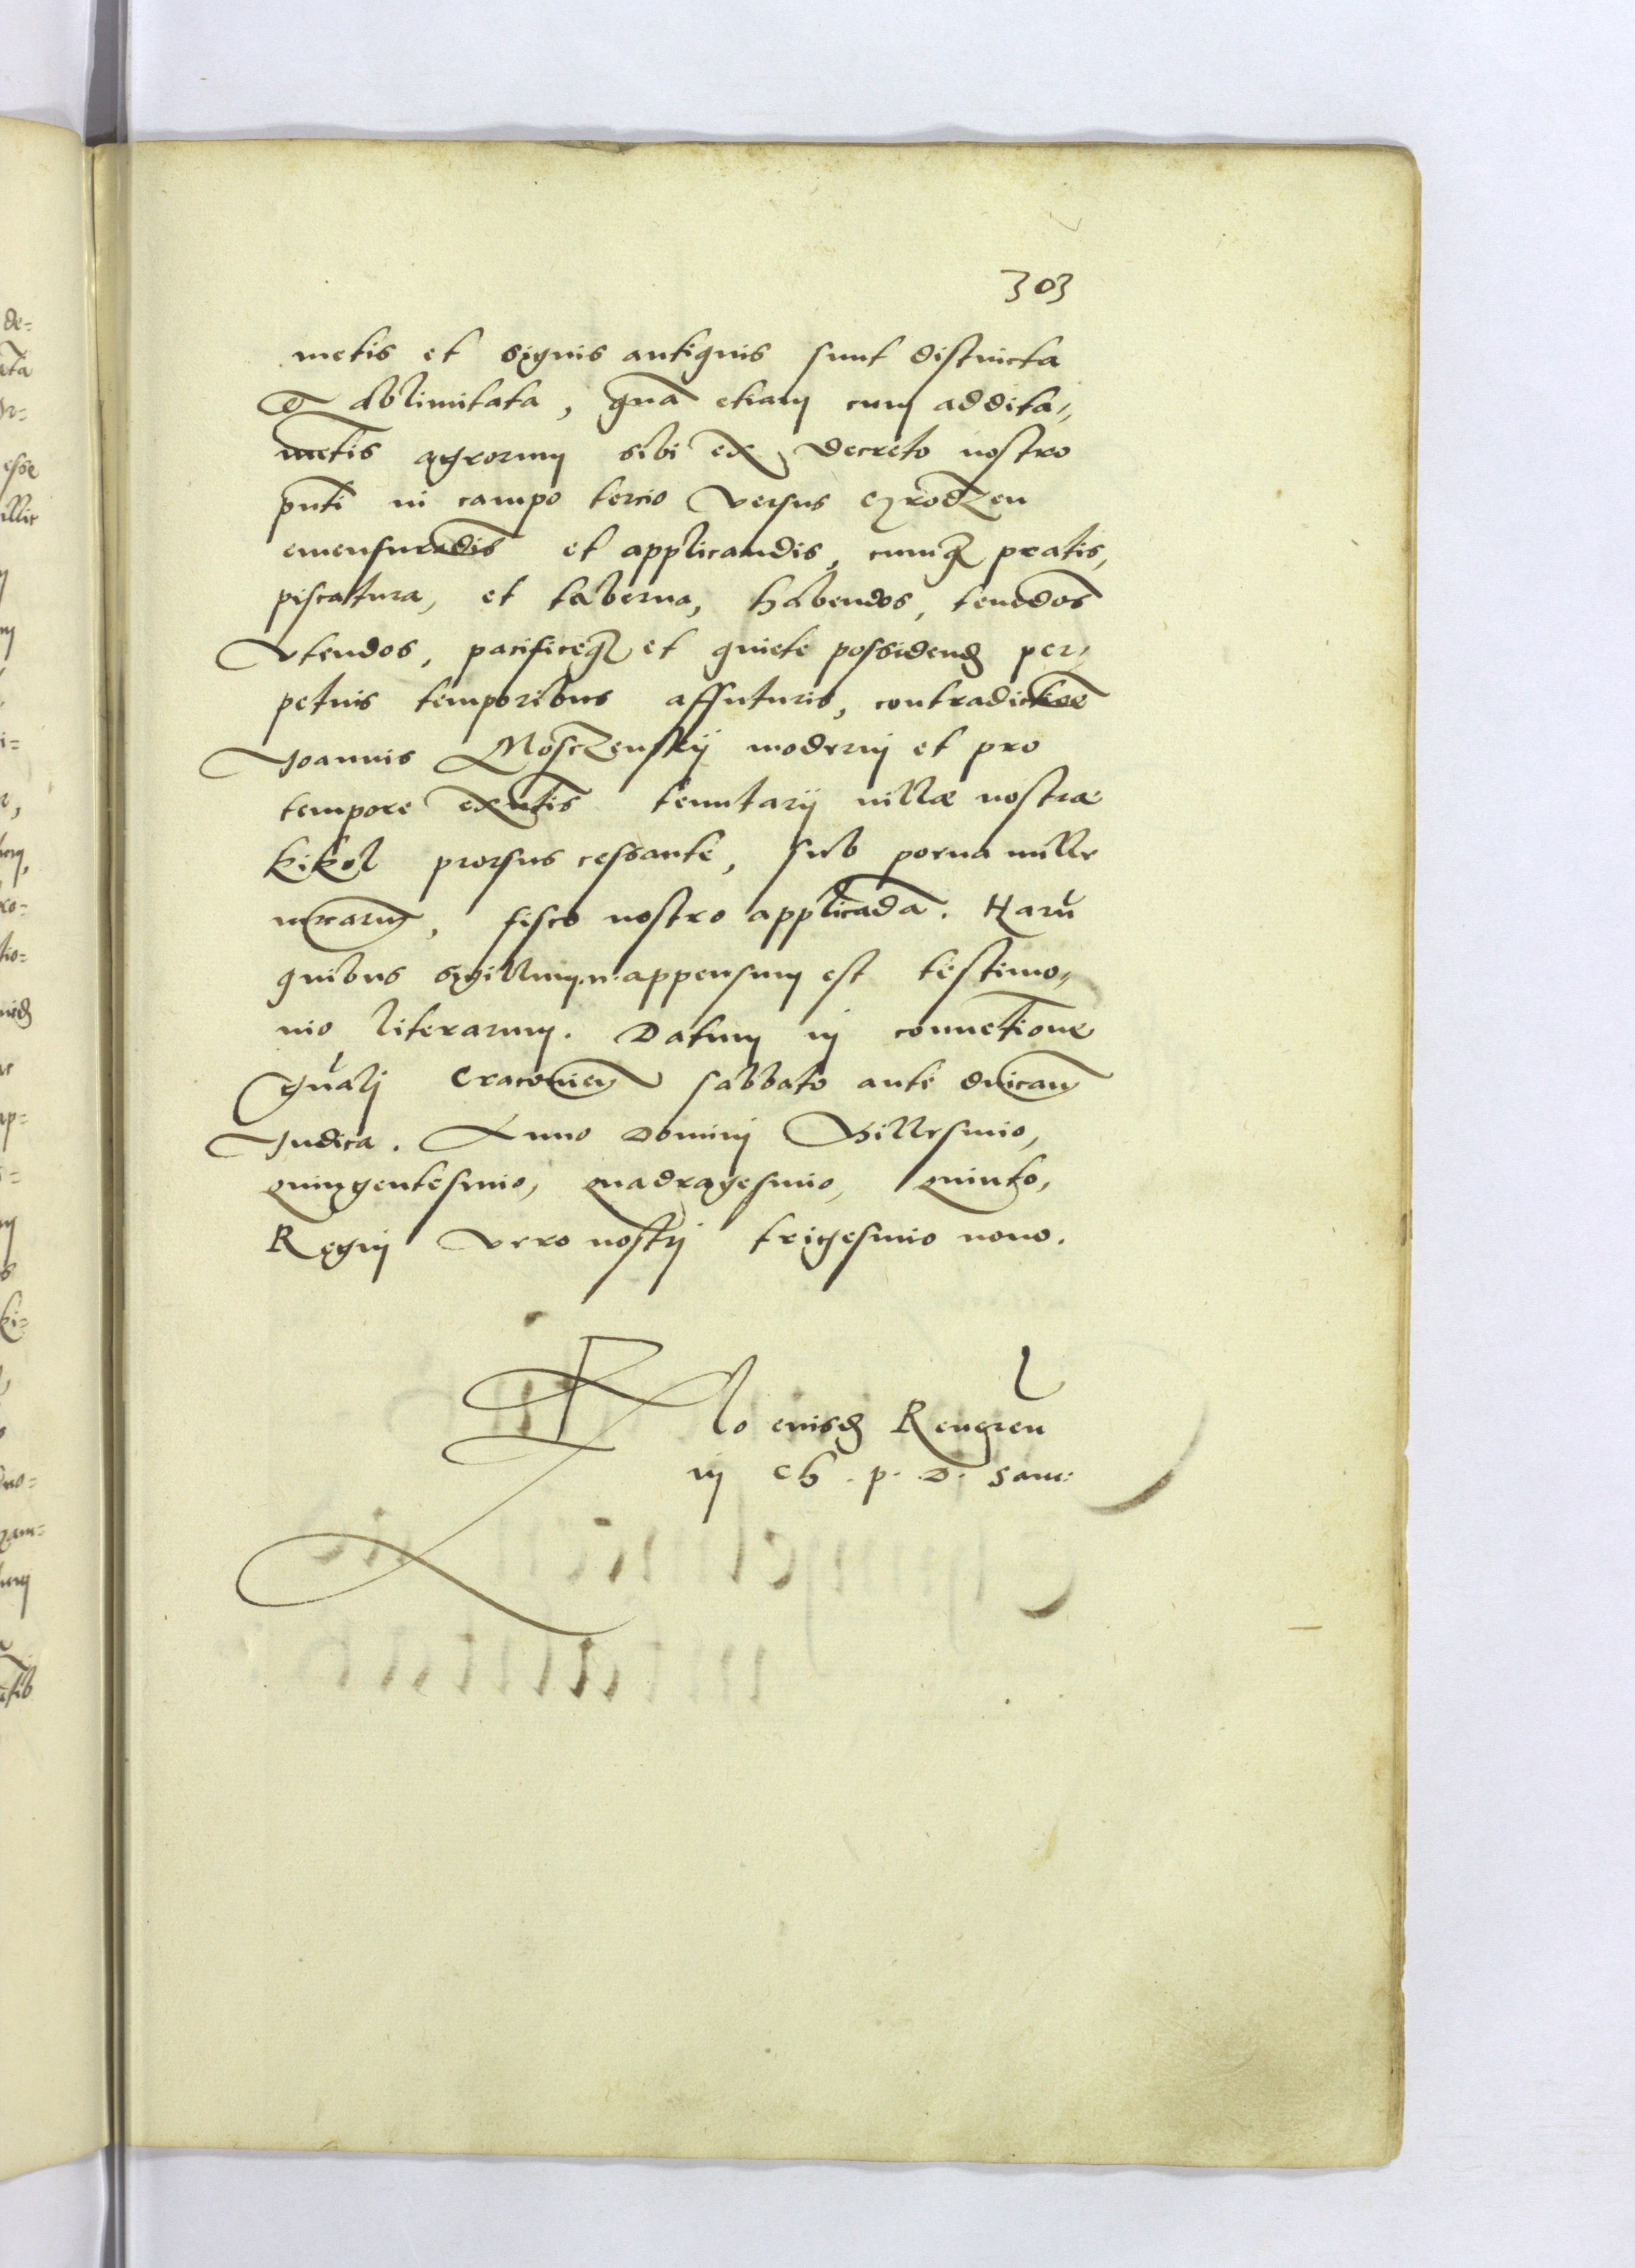 303
metis et signis antiquis sunt distincta
et ablimitata, quã etiam cum addita„
mẽtis agrorum sibi ex decreto nostro
pñti in campo tercio versus
emensurãdis et applicandis, cumq3 pratis,
piscatura, et taberna, habendos, tenẽdos
Vtendos, pacificeq3 et quiete possidend per„
petuis temporibus affuturis, contradictiõe
Joannis Mosczenskij moderni et pro
tempore exñtis tenutarij villæ nostræ
Kikol prorsus cessante, sub poena mille
mrcarum, fisco nostro applicãda. Harũ
quibus sigillum .n. appensum est testimo„
nio literarum. Datum in conuetione
gñali Cracouien sabbato ante dnicam
Judica. Anno Domini Millesimo,
quingentesimo, quadragesimo, quinto,
Regni vero nostri trigesimo nono.
in Ch. p. D. Sam: